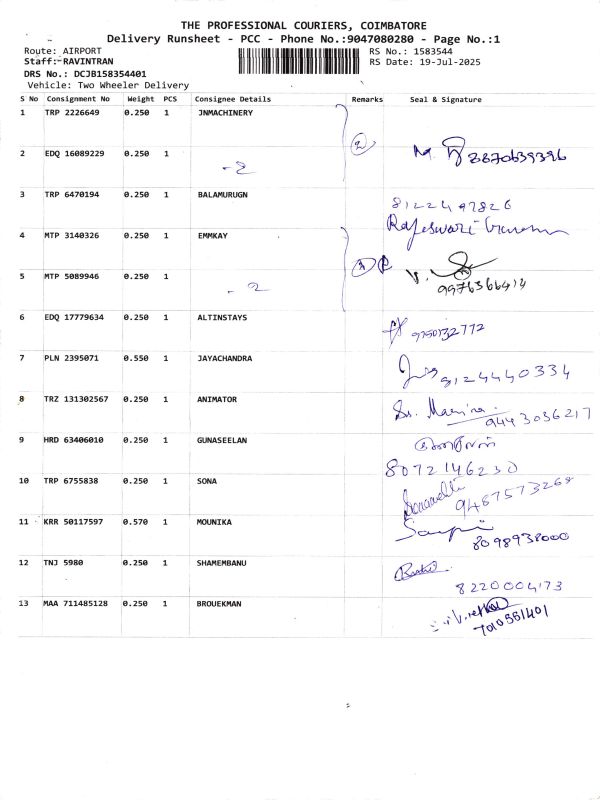 THE PROFESSIONAL COURIERS, COIMBATORE
Delivery Runsheet - PCC - Phone No.:9047080280 - Page No.:1
Route: AIRPORT RS No.: 1583544
Staff: RAVINTRAN RS Date: 19-Jul-2025
DRS No.: DCJB158354401
Vehicle: Two Wheeler Delivery
S No Consignment No Weight PCS Consignee Details Remarks Seal & Signature
1 TRP 2226649 0.250 1 JNMACHINERY
2 EDQ 16089229 0.250 1
- 2 2
3 TRP 6470194 0.250 1 BALAMURUGN
8122497826
Rajeswari
4 MTP 3140326 0.250 1 EMMKAY
5 MTP 5089946 0.250 1
- 2
6 EDQ 17779634 0.250 1 ALTINSTAYS
9750132772
7 PLN 2395071 0.550 1 JAYACHANDRA
9124440334
8 TRZ 131302567 0.250 1 ANIMATOR
9443036217
9 HRD 63406010 0.250 1 GUNASEELAN
8072146230
10 TRP 6755838 0.250 1 SONA
9487573268
11 KRR 50117597 0.570 1 MOUNIKA
8098938000
12 TNJ 5980 0.250 1 SHAMEMBANU
8220004173
13 MAA 711485128 0.250 1 BROUEKMAN
7010551401